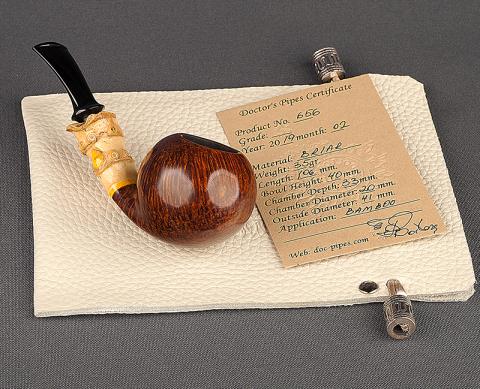 Doctor's Pipes Certificate
Product No. 666
Grade:
Year: 2019 month: 02
Material: BRIAR
Weight: 35 gr.
Length: 106 mm.
Bowl Height: 40 mm.
Chamber Depth: 33 mm.
Chamber Diameter: 20 mm.
Outside Diameter: 41 mm.
Application: BAMBOO
Web: doc-pipes.com